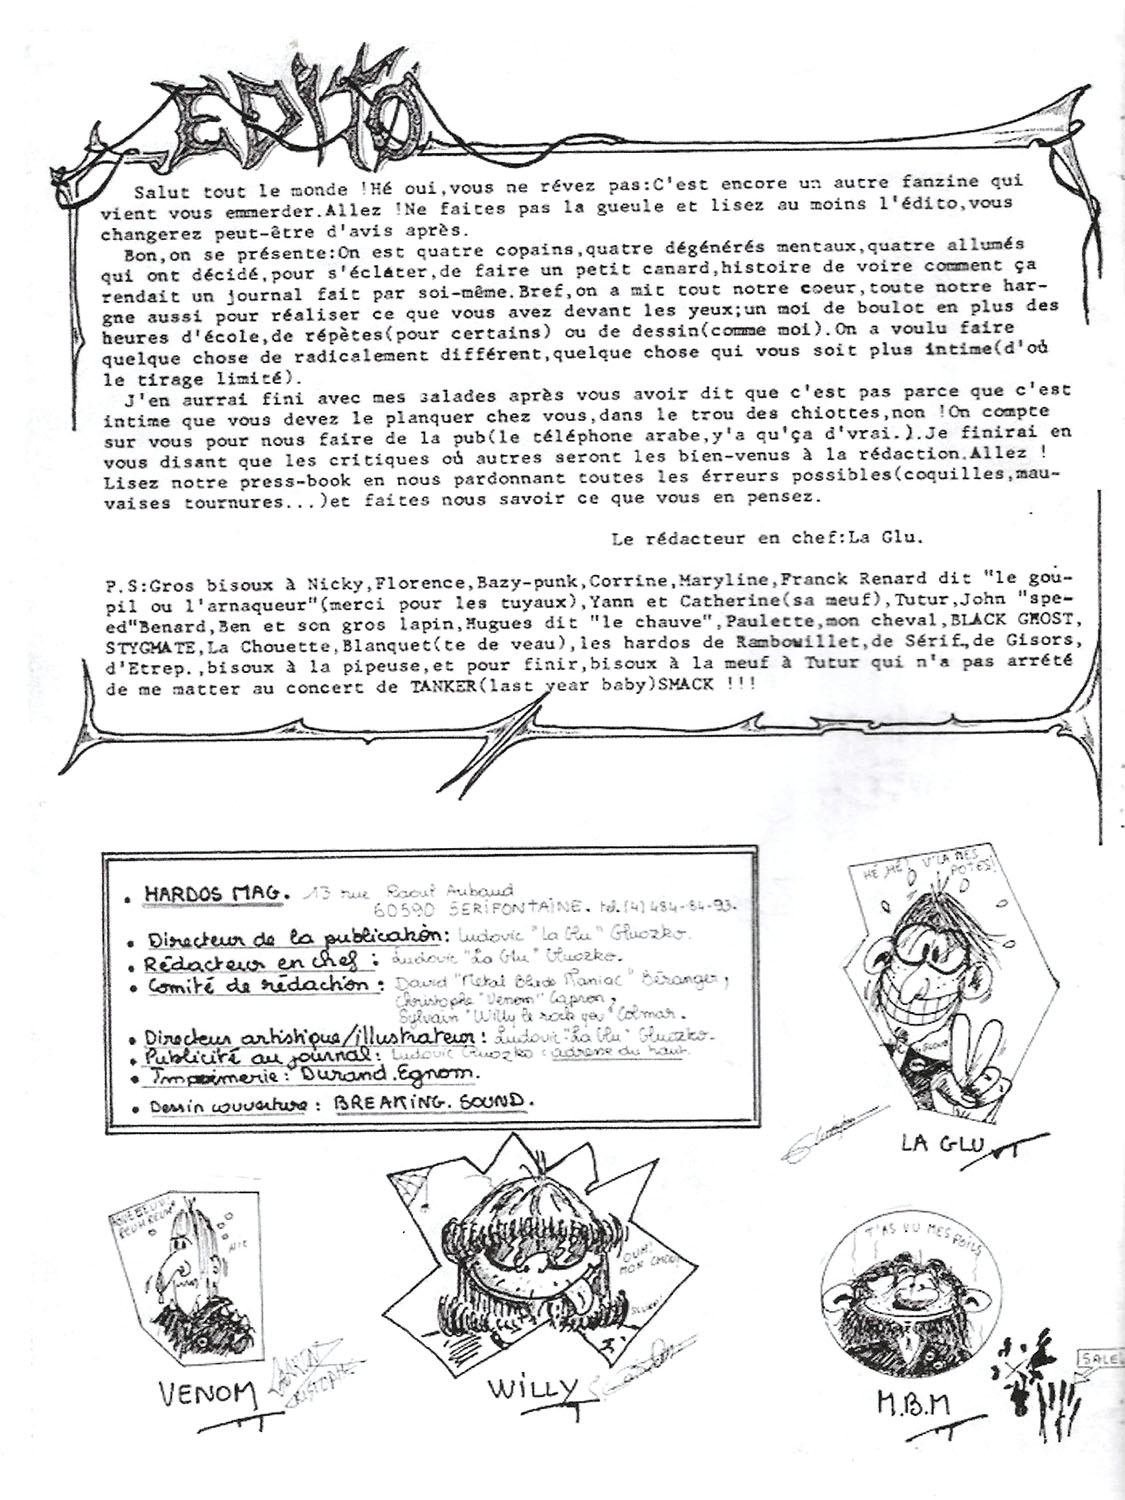 EDITO
Salut tout le monde !Hé oui,vous ne révez pas:C'est encore un autre fanzine qui
vient vous emmerder.Allez !Ne faites pas la gueule et lisez au moins l'édito,vous
changerez peut-être d'avis après.
Bon,on se présente:On est quatre copains,quatre dégénérés mentaux,quatre allumés
qui ont décidé,pour s'éclater,de faire un petit canard,histoire de voire comment ça
rendait un journal fait par soi-même.Bref,on a mit tout notre coeur,toute notre har-
gne aussi pour réaliser ce que vous avez devant les yeux;un moi de boulot en plus des
heures d'école,de répètes(pour certains) ou de dessin(comme moi).On a voulu faire
quelque chose de radicalement différent,quelque chose qui vous soit plus intime(d'où
le tirage limité).
J'en aurrai fini avec mes salades après vous avoir dit que c'est pas parce que c'est
intime que vous devez le planquer chez vous,dans le trou des chiottes,non !On compte
sur vous pour nous faire de la pub(le téléphone arabe,y'a qu'ça d'vrai.).Je finirai en
vous disant que les critiques où autres seront les bien-venus à la rédaction.Allez !
Lisez notre press-book en nous pardonnant toutes les érreurs possibles(coquilles,mau-
vaises tournures...)et faites nous savoir ce que vous en pensez.
Le rédacteur en chef:La Glu.
P.S:Gros bisoux à Nicky,Florence,Bazy-punk,Corrine,Maryline,Franck Renard dit "le gou-
pil ou l'arnaqueur"(merci pour les tuyaux),Yann et Catherine(sa meuf),Tutur,John "spe-
ed"Benard,Ben et son gros lapin,Hugues dit "le chauve",Paulette,mon cheval,BLACK GHOST,
STYGMATE,La Chouette,Blanquet(te de veau),les hardos de Rambouillet,de Sérif.,de Gisors,
d'Etrep.,bisoux à la pipeuse,et pour finir,bisoux à la meuf à Tutur qui n'a pas arrété
de me matter au concert de TANKER(last year baby)SMACK !!!
• HARDOS MAG. 13 rue Raoul Aubaud
60590 SERIFONTAINE. tél.(4)484-84-93.
• Directeur de la publication: Ludovic "La Glu" Gluszko.
• Rédacteur en chef : Ludovic "La Glu" Gluszko.
• Comité de rédaction : David "Metal Blade Maniac" Béranger,
Christophe "Venom" Capron,
Sylvain "Willy le rock yeu" Colmar.
• Directeur artistique/illustrateur: Ludovic "La Glu" Gluszko.
• Publicité au journal: Ludovic Gluszko : adresse du haut.
• Imprimerie: Durand.Egnom.
• Dessin couverture : BREAKING. SOUND.
HÉ HÉ! V'LA MES
POTES!
LA GLU
HIC
VENOM
OUH!
MON CHOU!
SLURP!
WILLY
T'AS VU MES POILS
M.B.M